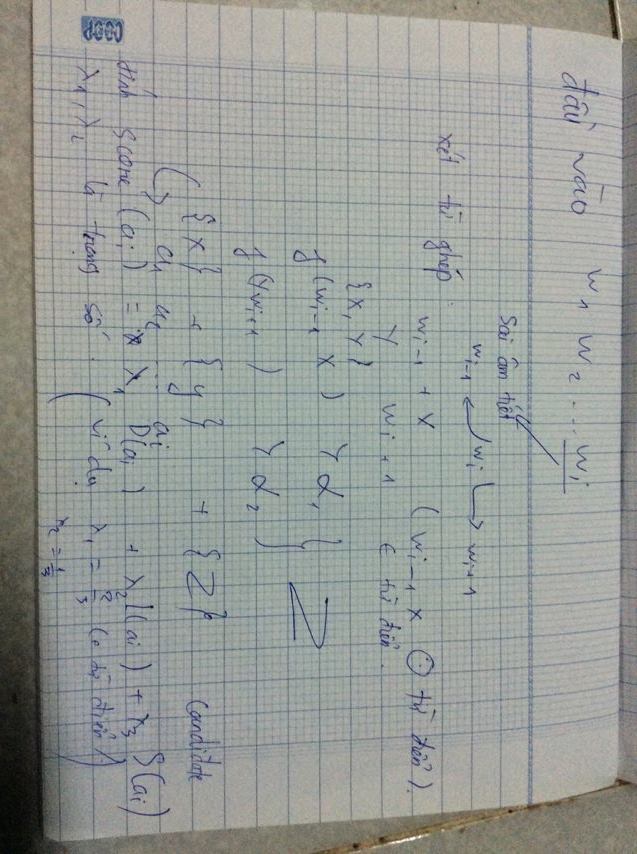 đầu vào w1 w2 ... wi
Sai âm tiết
wi-1 wi wi+1
xét từ ghép
wi-1 + X ( wi-1 X ⊙ từ điển ).
Y wi+1 ∈ từ điển.
{X, Y}
f(wi-1 X) > α1
} Z
f(Ywi+1) > α2
{x} + {y} + {Z} candidate
a1 a2 ... ai
tính score (ai) = λ1 D(ai) + λ2 L(ai) + λ3 S(ai)
λ1, λ2 là trọng số. ( ví dụ λ1 = 2/3 có từ điển )
λ2 = 1/3